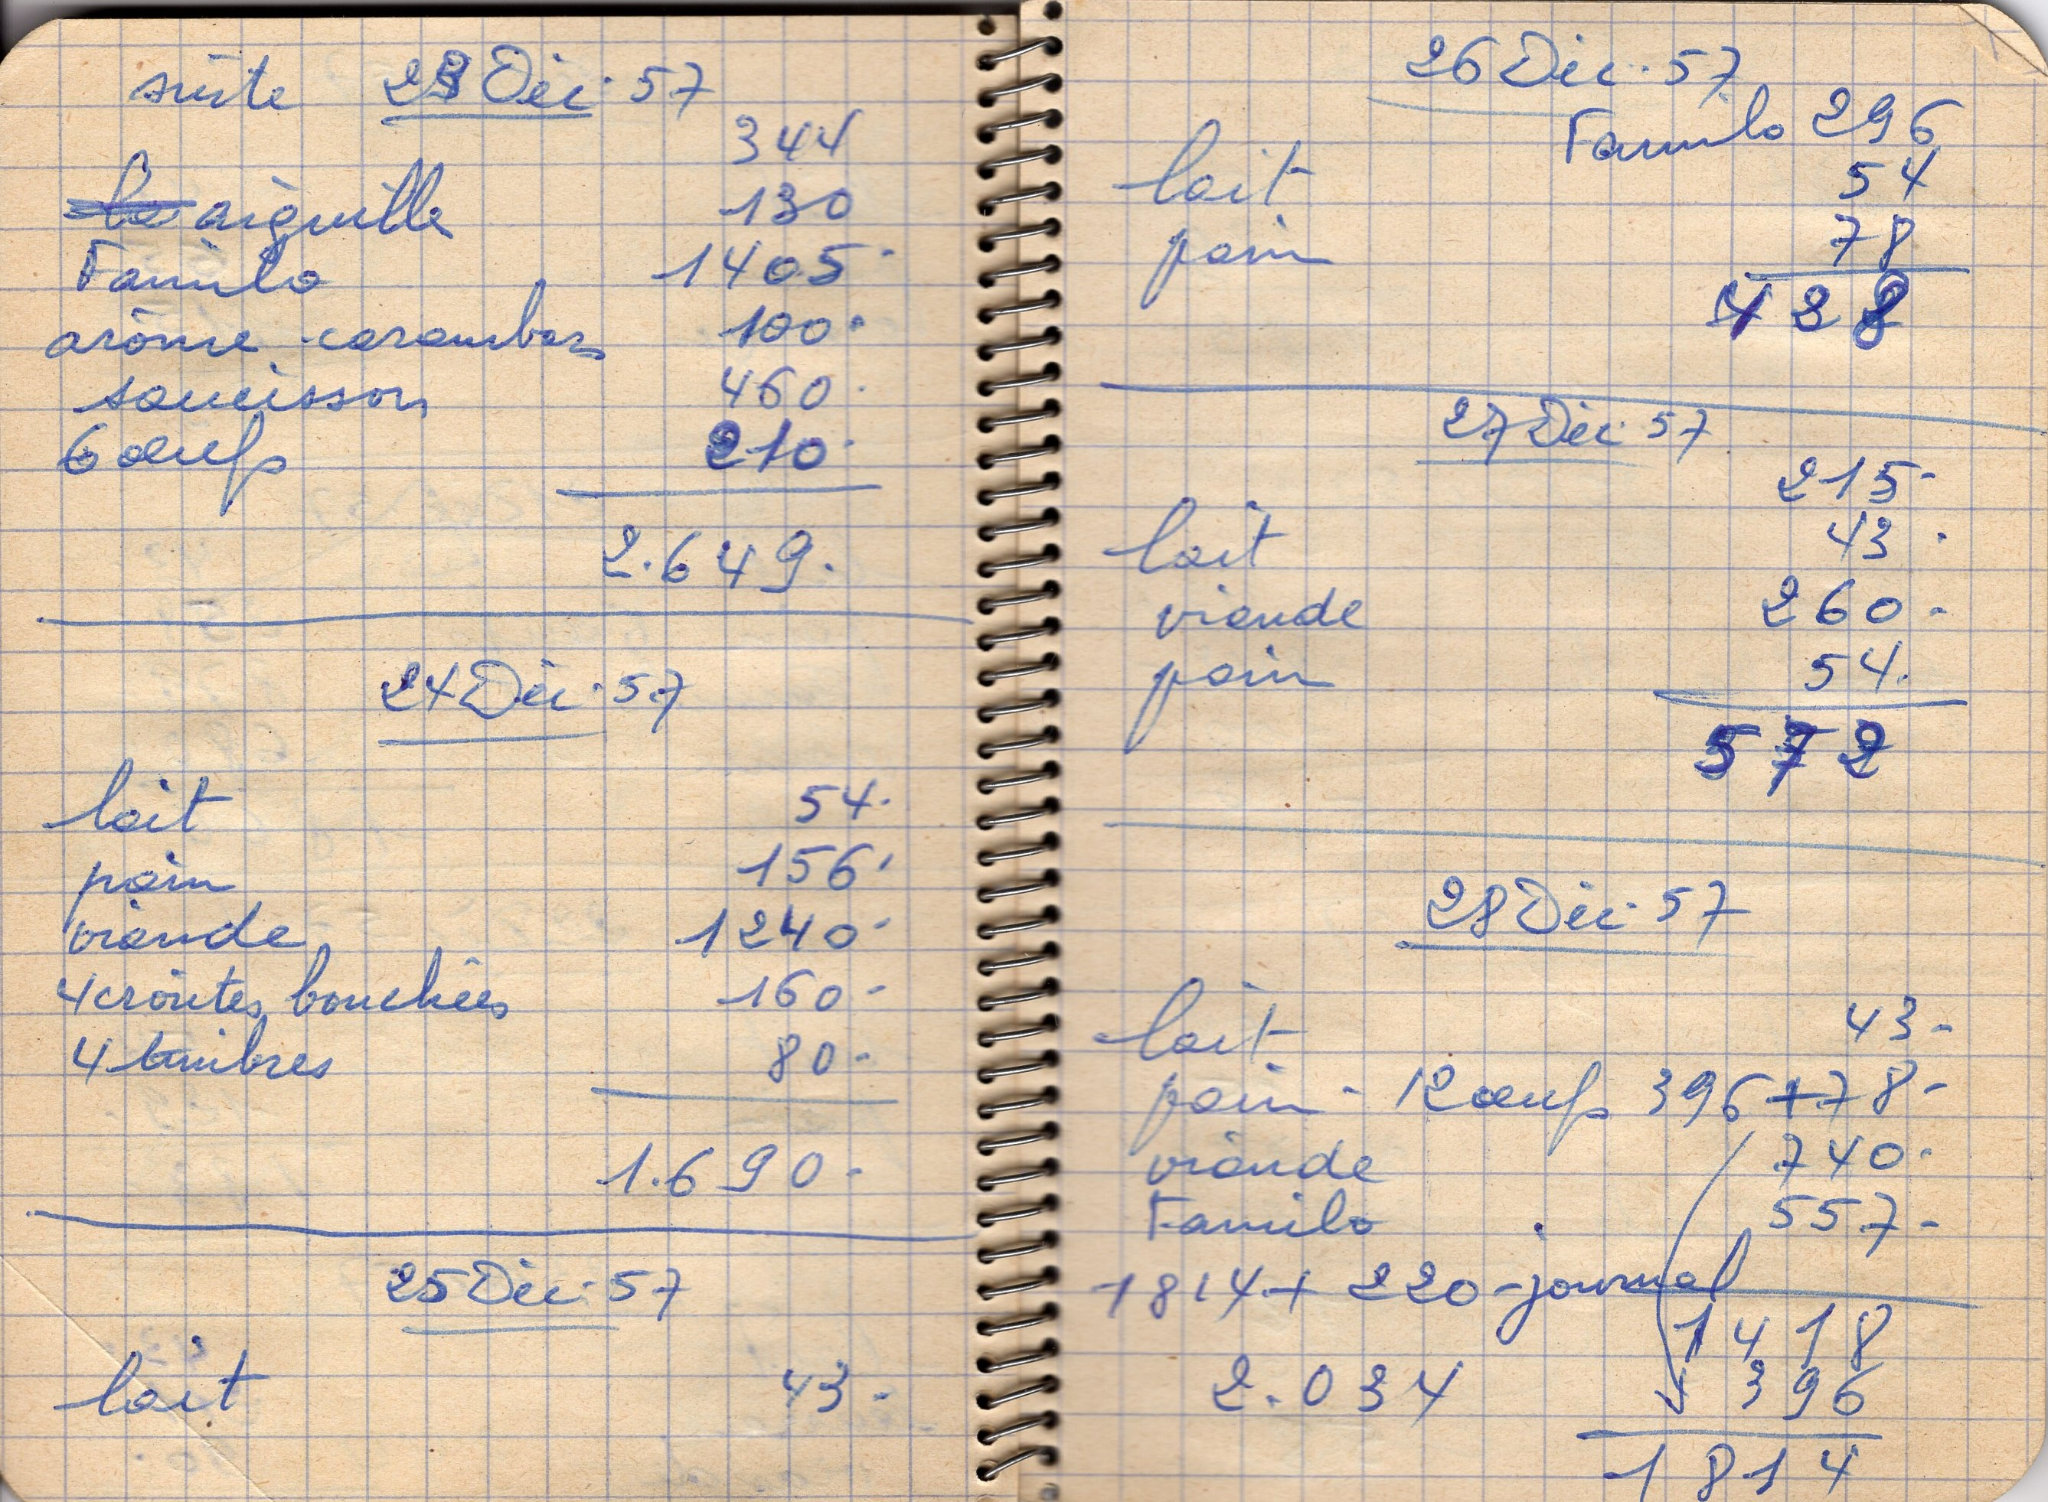 suite 23 Déc. 57
344
aiguille 130
Familo 1405.
arôme - carambars 100.
saucisson 460.
6 œufs 210.
2.649.
24 Déc. 57
lait 54.
pain 156.
viande 1240.
4 croûtes bouchées 160-
4 timbres 80-
1.690-
25 Déc. 57
lait 43-
26 Déc. 57
Familo 296
lait 54
pain 78
428
27 Déc. 57
215-
lait 43.
viande 260-
pain 54.
572
28 Déc. 57
lait 43-
pain - 12 œufs 396+78-
viande 740.
Familo 557-
1814+220-journal
1418
2.034 396
1814